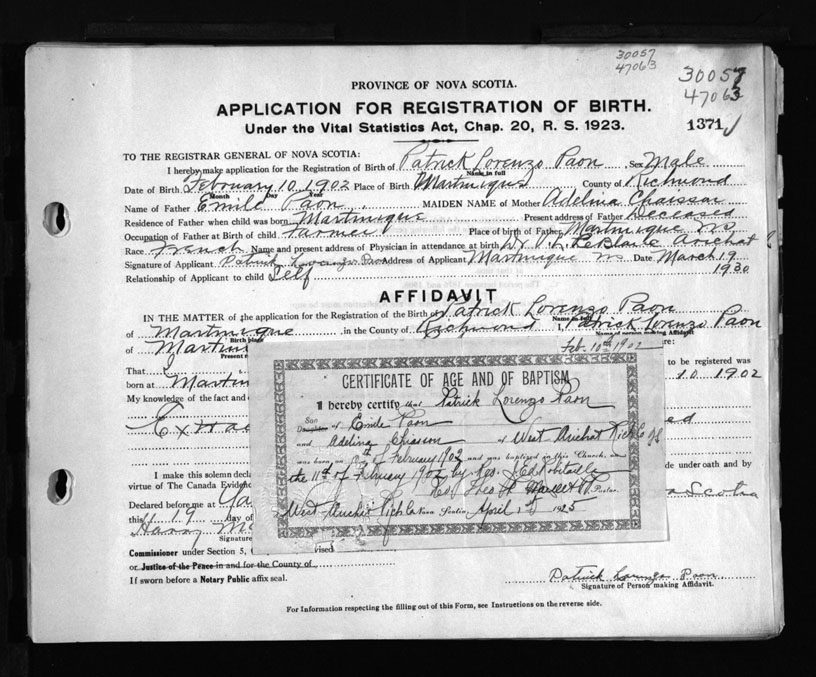 30057
47063
30057
47063
PROVINCE OF NOVA SCOTIA.
APPLICATION FOR REGISTRATION OF BIRTH.
Under the Vital Statistics Act, Chap. 20, R. S. 1923.
1371
TO THE REGISTRAR GENERAL OF NOVA SCOTIA:
I hereby make application for the Registration of Birth of Patrick Lorenzo Paon Sex Male
Name in full
Date of Birth February 10, 1902 Place of Birth Martinique County of Richmond
Month Day Year
Name of Father Emile Paon MAIDEN NAME of Mother Adelina Chaisson
Residence of Father when child was born Martinique Present address of Father Deceased
Occupation of Father at Birth of child Farmer Place of birth of Father Martinique N.S.
Race French Name and present address of Physician in attendance at birth Dr LeBlanc Arichat
Signature of Applicant Patrick Lorenzo Paon Address of Applicant Martinique NS Date March 19
1930
Relationship of Applicant to child Self
AFFIDAVIT
IN THE MATTER of the application for the Registration of the Birth of Patrick Lorenzo Paon
Name in full
of Martinique in the County of Richmond I, Patrick Lorenzo Paon
Birth place Name of person making Affidavit
of Martin
Present r
Feb. 10th 1902
That I to be registered was
born at Martin 10 1902
My knowledge of the fact and
CERTIFICATE OF AGE AND OF BAPTISM
I hereby certify that Patrick Lorenzo Paon
Son
Daughter of Emile Paon
and Adeline Chiasson of West Arichat Rich Co NS
was born on 10th of February 1902 and was baptized in this Church, on
the 11th of February 1902 by Rev.
Rev. Pastor
West Arichat Rich Co Nova Scotia, April 1925
I make this solemn decla de under oath and by
virtue of The Canada Evidenc a Scotia
Declared before me at
this 19 day of
Harry
Signature
Commissioner under Section 5, vised
or Justice of the Peace in and for the County of
If sworn before a Notary Public affix seal.
Patrick Lorenzo Paon
Signature of Person making Affidavit.
For Information respecting the filling out of this Form, see Instructions on the reverse side.